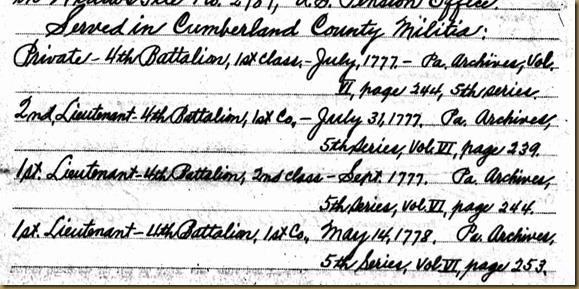 File No. 2161, U.S. Pension Office
Served in Cumberland County Militia:
Private - 4th Battalion, 1st class, - July, 1777. - Pa. Archives, Vol.
VI, page 244, 5th series.
2nd. Lieutenant - 4th Battalion, 1st Co., - July 31, 1777. Pa. Archives,
5th Series, Vol. VI, page 239.
1st. Lieutenant - 4th Battalion, 2nd class - Sept. 1777. Pa. Archives,
5th Series, Vol. VI, page 244.
1st. Lieutenant - 4th Battalion, 1st Co., May 14, 1778. Pa. Archives,
5th Series, Vol. VI, page 253.